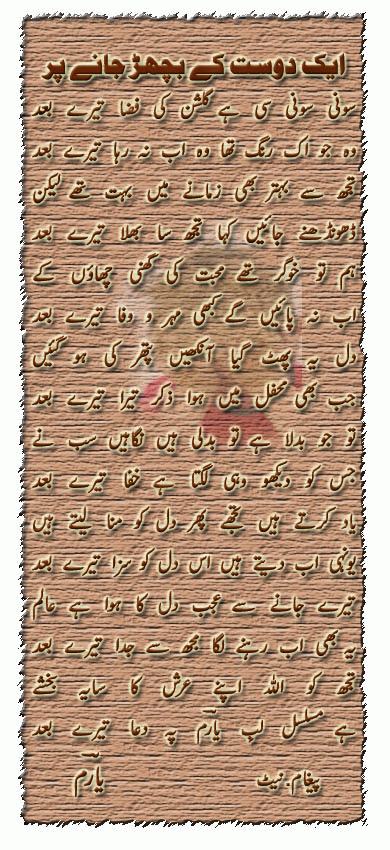 ایک دوست کے بچھڑ جانے پر
سونی سونی سی ہے گلشن کی فضا تیرے بعد
وہ جو اک رنگ تھا وہ اب نہ رہا تیرے بعد
تجھ سے بہتر بھی زمانے میں بہت تھے لیکن
ڈھونڈھنے جائیں کہا تجھ سا بھلا تیرے بعد
ہم تو خوگر تھے محبت کی گھنی چھاؤں کے
اب نہ پائیں گے کبھی مہر و وفا تیرے بعد
دل یہ پھٹ گیا آنکھیں پتھر کی ہو گئیں
جب بھی محفل میں ہوا ذکر تیرا تیرے بعد
تو جو بدلا ہے تو بدلی ہیں نگاہیں سب نے
جس کو دیکھو وہی لگتا ہے خفا تیرے بعد
یاد کرتے ہیں تجھے پھر دل کو منا لیتے ہیں
یونہی اب دیتے ہیں اس دل کو سزا تیرے بعد
تیرے جانے سے عجب دل کا ہوا ہے عالم
یہ بھی اب رہنے لگا مجھ سے جدا تیرے بعد
تجھ کو اللہ اپنے عرش کا سایہ بخشے
ہے مسلسل لب یارم پہ دعا تیرے بعد
پیغام.نیٹ یارم